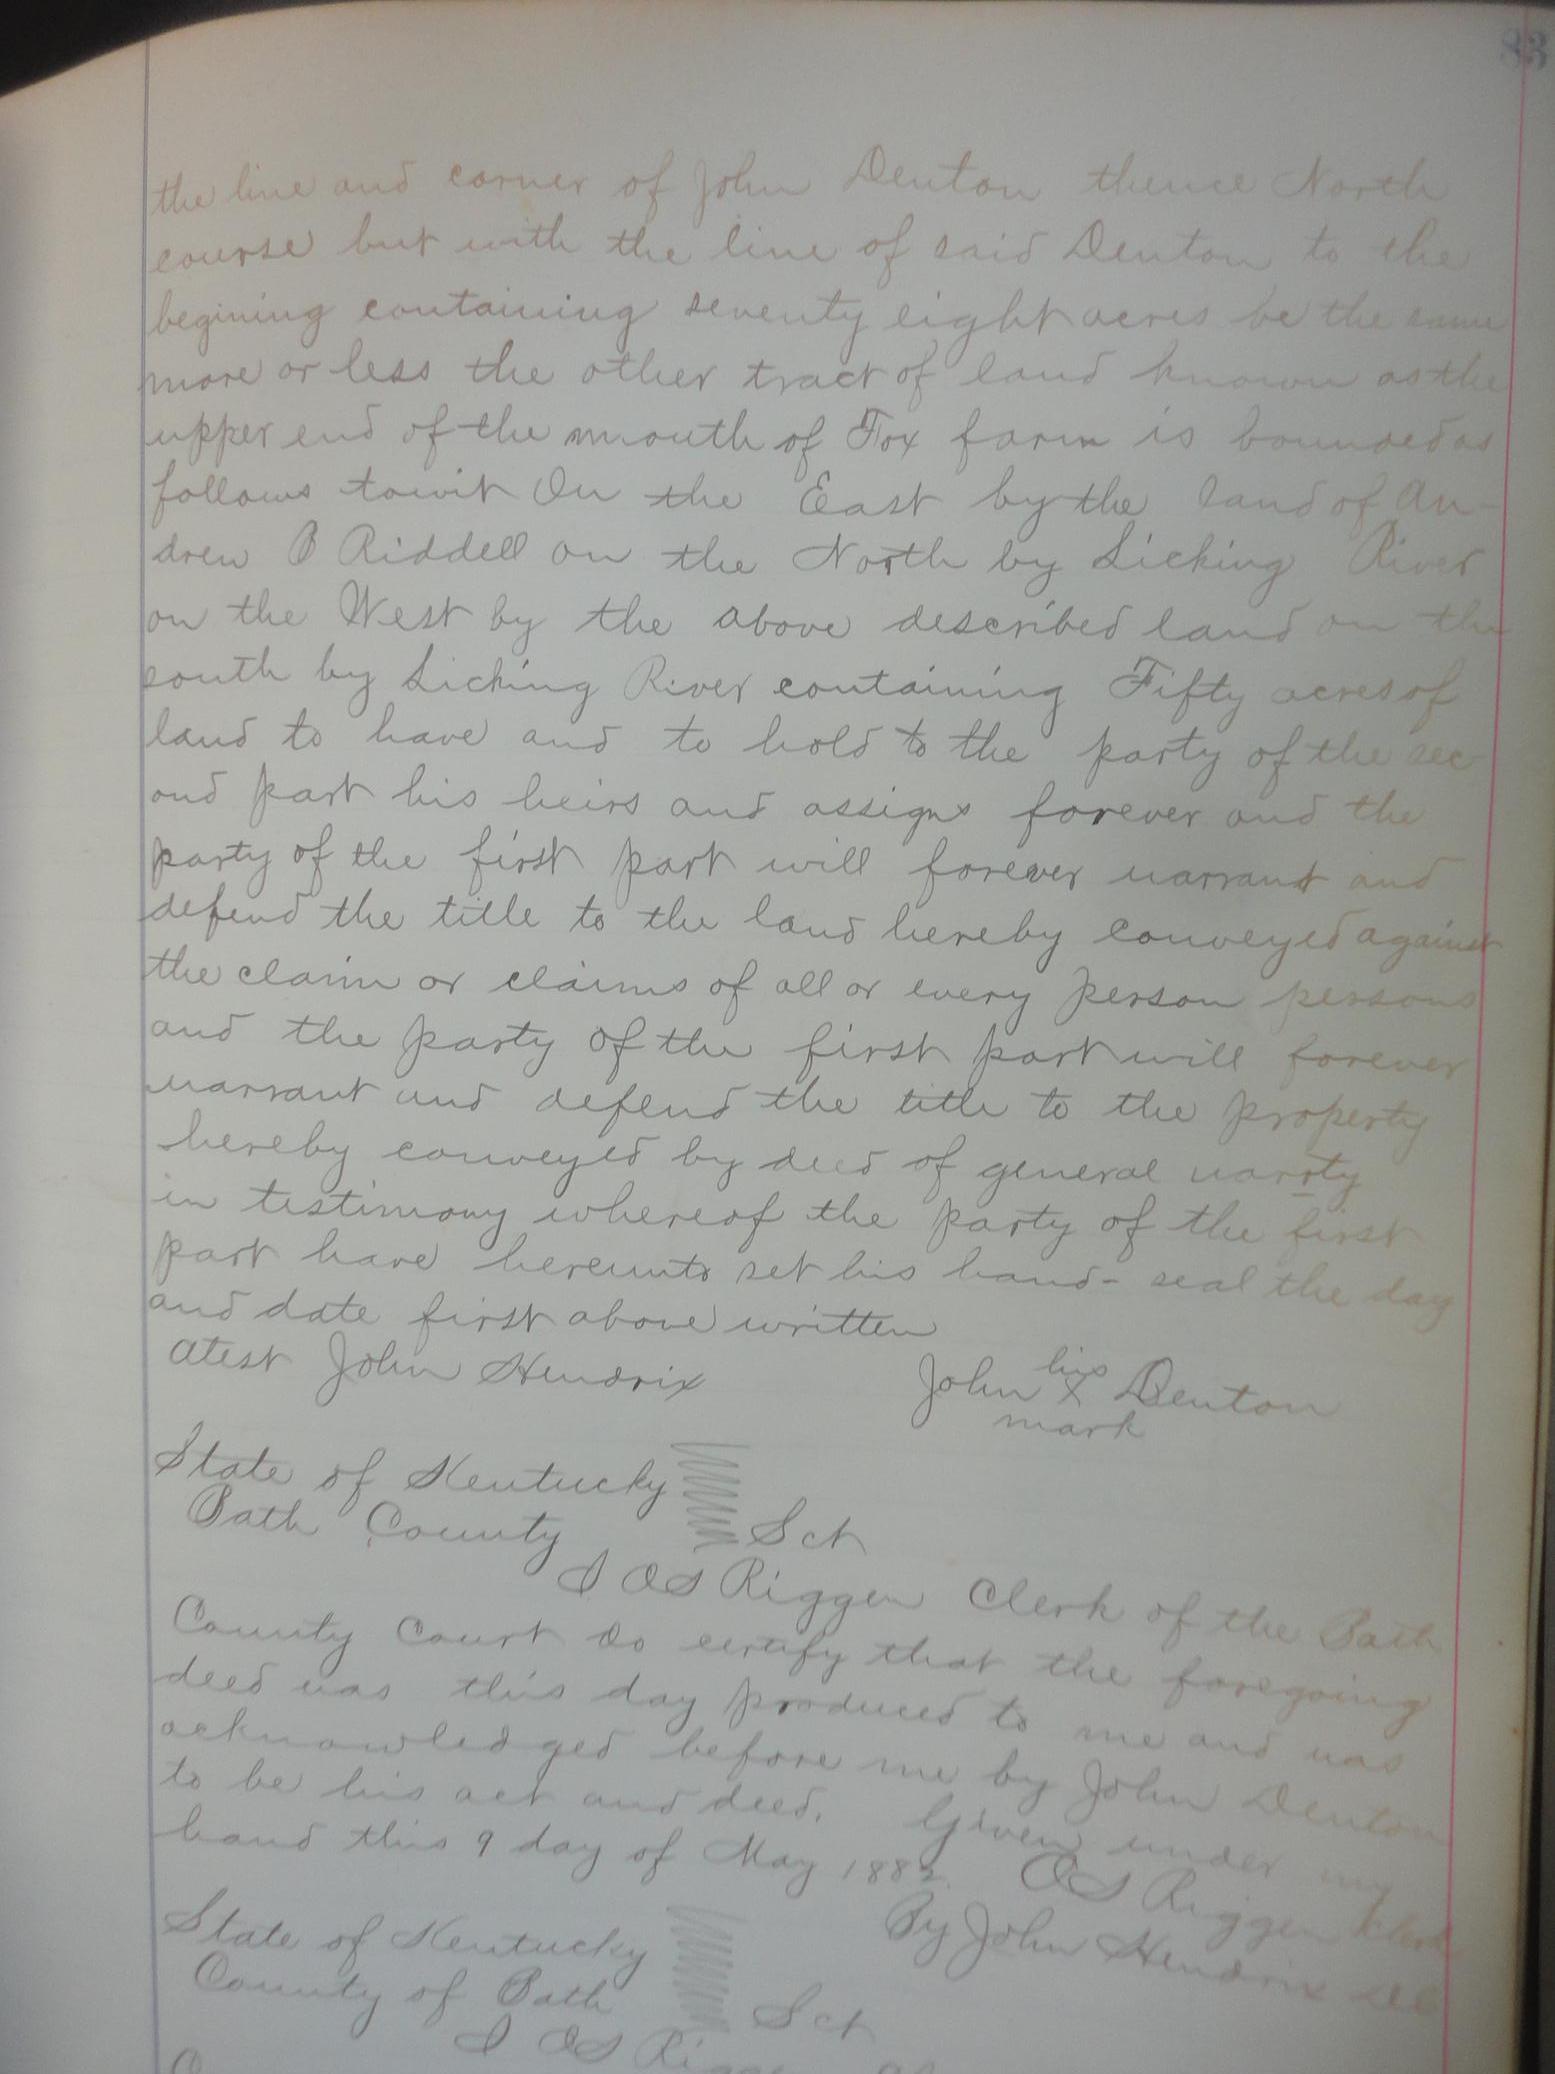 83
the line and corner of John Denton thence North
course but with the line of said Denton to the
begining containing seventy eight acres be the same
more or less the other tract of land known as the
upper end of the mouth of Fox farm is bounded as
follows towit On the East by the land of An-
drew B Riddell on the North by Licking River
on the West by the above described land on the
south by Licking River containing Fifty acres of
land to have and to hold to the party of the sec
ond part his heirs and assigns forever and the
party of the first part will forever warrant and
defend the title to the land hereby conveyed against
the claim or claims of all or every person persons
and the party of the first part will forever
warrant and defend the title to the property
hereby conveyed by deed of general warrty
in testimony whereof the party of the first
part have hereunto set his hand - seal the day
and date first above written
atest John Hendrix
his
John X Denton
mark
State of Kentucky
Bath County Sct
I OS Riggen Clerk of the Bath
County Court do certify that the foregoing
deed was this day produced to me and was
acknowledged before me by John Denton
to be his act and deed. Given under my
hand this 9 day of May 1882. OS Riggen Clerk
By John Hendrix
State of Kentucky
County of Bath Sct
I OS